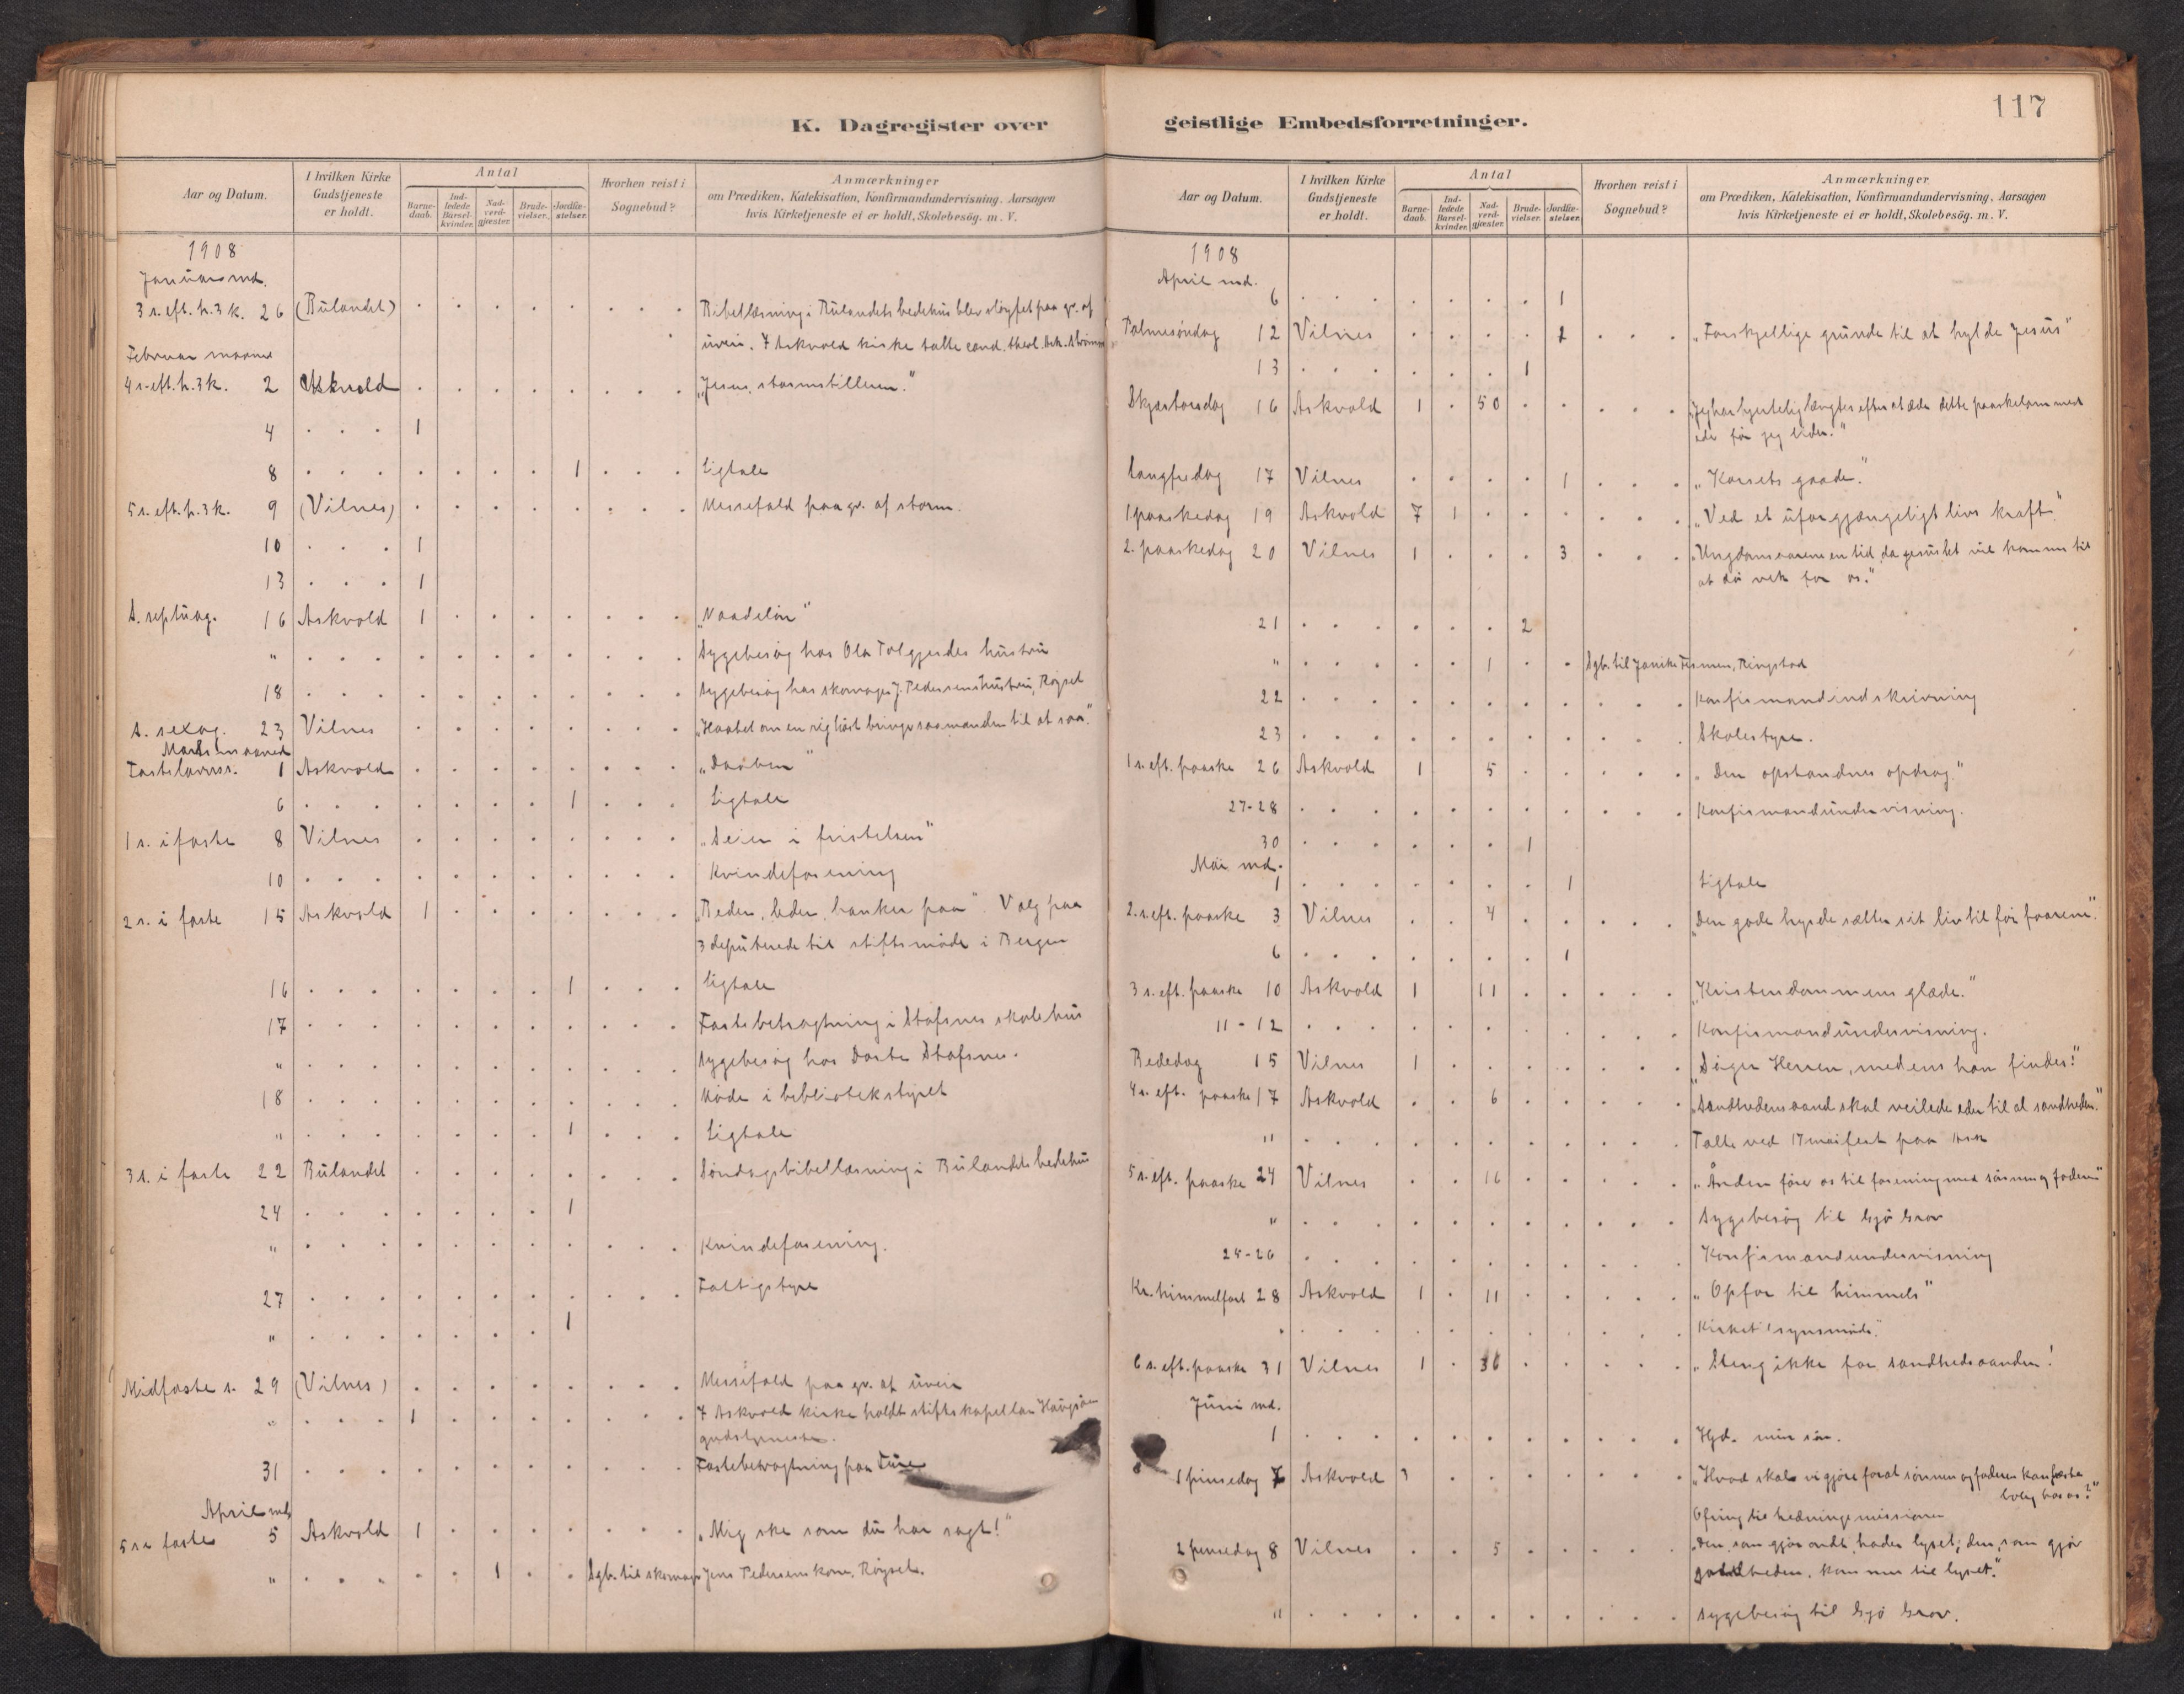 117
K. Dagregister over geistlige Embedsforretninger.
Aar og Datum. I hvilken Kirke Gudstjeneste er holdt. Antal Barnedaab. Indledede Barselkvinder. Nadverdgjæster. Brudevielser. Jordfæstelser. Hvorhen reist i Sognebud? Anmærkninger om Prædiken, Katekisation, Konfirmandundervisning, Aarsagen hvis Kirketjeneste ei er holdt, Skolebesög. m. V.
1908
Januar md.
3 s. eft. h. 3 k. 26 (Bulandet) Bibellæsning i Bulandets bedehus blev sløyfet paa gr. af
uveir. I Askvold kirke talte cand. theol.
Februar maaned
4 s. eft. h. 3 k. 2 Askvold „Jesus, stormstilleren."
4 1
8 1 Ligtale
5 s. eft. h. 3 k. 9 (Vilnes) Messefald paa gr. af storm.
10 1
13 1
S. septuag. 16 Askvold 1 „Naadeløn"
" Sygebesøg hos Ola hustru
18 Sygebesøg hos skomager J. Pedersens hustru, Røysel
S. sexag. 23 Vilnes „Haabet om en rig høst bringer saamanden til at saa."
Marts maaned
Fastelavnss. 1 Askvold „Daaben"
6 1 Ligtale
1 s. i faste 8 Vilnes „Seier i fristelsen"
10 Kvindeforening
2 s. i faste 15 Askvold 1 „Beder, leder, banker paa" Valg paa
3 deputerede til stiftsmøde i Bergen
16 1 Ligtale
17 Fastebetragtning i Stafsnes skolehus
" Sygebesøg hos Dorte Stafsnes.
18 Møde i bibliotekstyret
" 1 Ligtale
3 s. i faste 22 Bulandet Søndagsbibellæsning i Bulandets bedehus
24 1
" Kvindeforening.
27 Fattigstyre
" 1
Midfaste s. 29 (Vilnes) Messefald paa gr. af uveir
" 1 I Askvold kirke holdt stiftskapellan
gudstjeneste.
31 Fastebetragtning paa
April md.
5 s i faste 5 Askvold 1 „Mig ske som du har sagt!"
" 1 Sgb. til skomager Jens Pedersens kone, Røysel.
Aar og Datum. I hvilken Kirke Gudstjeneste er holdt. Antal Barnedaab. Indledede Barselkvinder. Nadverdgjæster. Brudevielser. Jordfæstelser. Hvorhen reist i Sognebud? Anmærkninger om Prædiken, Katekisation, Konfirmandundervisning, Aarsagen hvis Kirketjeneste ei er holdt, Skolebesög. m. V.
1908
April md.
6 1
Palmesøndag 12 Vilnes 1 „Forskjellige grunde til at hylde Jesus"
13 1
Skjærtorsdag 16 Askvold 1 50 „Jeg har hjertelig længtes efter at æde dette paaskelam med
eder før jeg lider."
Langfredag 17 Vilnes 1 „Korsets gaade."
1 paaskedag 19 Askvold 7 1 „Ved et uforgjængeligt livs kraft."
2. paaskedag 20 Vilnes 1 3 „Ungdomsaarene en tid, da vil komme til
at væk for os."
21 2
" 1 Sgb. til Ringstad
22 Konfirmandindskrivning
23 Skolestyre.
1 s. eft. paaske 26 Askvold 1 5 „Den opstandnes opdrag."
27-28 Konfirmandundervisning.
30 1
Mai md.
1 1 Ligtale
2. s. eft. paaske 3 Vilnes 4 „Den gode hyrde sætter sit liv til for faarene".
6 1
3 s. eft. paaske 10 Askvold 1 11 „Kristendommens glæde."
11-12 Konfirmandundervisning.
Bededag 15 Vilnes 1 „Søger Herren, medens han findes!"
4 s. eft. paaske 17 Askvold 6 „Sandhedens aand skal veilede eder til al sandheden."
" Talte ved 17 maifest paa Ask
5 s. eft. paaske 24 Vilnes 16 „Ånden fører os til forening med sønnen og faderen"
" Sygebesøg til
25-26 Konfirmandundervisning
Kr. himmelfart 28 Askvold 1 11 „Opfor til himmels"
" Kirketilsynsmøde.
6 s. eft. paaske 31 Vilnes 1 36 „Steng ikke for sandhedsaanden!
Juni md.
1 Hgd. min søn.
1 pinsedag 7 Askvold 3 „Hvad skal vi gjøre forat sønnen og faderen kan fæste
bolig hos os?"
Ofring til hedningemissionen
2 pinsedag 8 Vilnes 5 „Den, som gjør ondt, hader lyset; den, som gjør
sandheden, kommer til lyset."
" Sygebesøg til